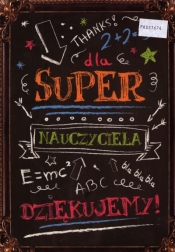 THANKS!
2+2=
dla
SUPER
NAUCZYCIELA
E=mc²
ABC
bla
bla
bla
DZIĘKUJEMY!